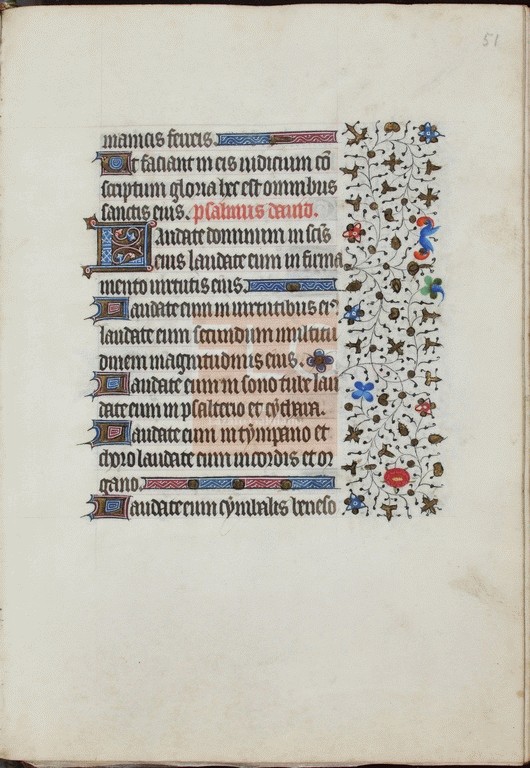 51
manicis ferreis.
Ut faciant in eis iudicium cō
scriptum gloria hec est omnibus
sanctis eius. psalmus dauid.
Laudate dominum in scīs
eius laudate eum in firma
mento uirtutis eius.
Laudate eum in uirtutibus eiꝰ
laudate eum secundum multitu
dinem magnitudinis eius.
Laudate eum in sono tube lau
date eum in psalterio et cythara.
Laudate eum in tympano et
choro laudate eum in cordis et or
gano.
Laudate eum cymbalis beneso